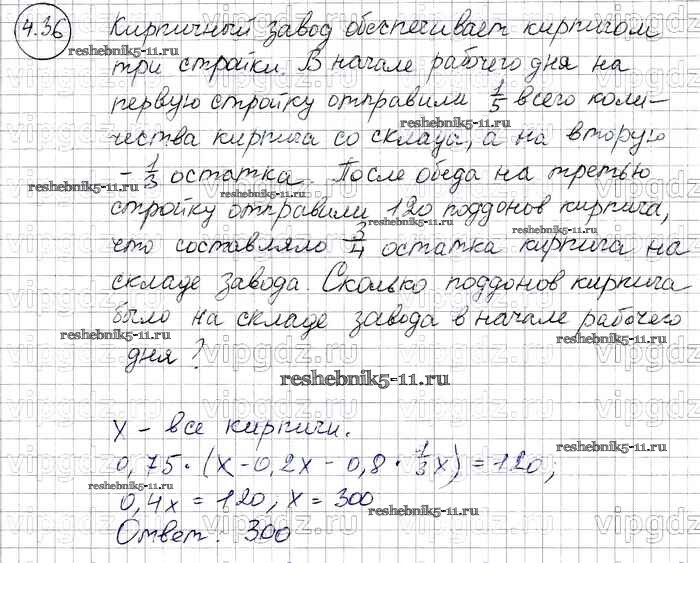 4.36 Кирпичный завод обеспечивает кирпичом
reshebnik5-11.ru
три стройки. В начале рабочего дня на
первую стройку отправили 1/5 всего коли-
reshebnik5-11.ru
чества кирпича со склада, а на вторую
- 1/3 остатка. После обеда на третью
reshebnik5-11.ru
reshebnik5-11.ru
стройку отправили 120 поддонов кирпича,
reshebnik5-11.ru
что составляло 3/4 остатка кирпича на
складе завода. Сколько поддонов кирпича
было на складе завода в начале рабочего
reshebnik5-11.ru
reshebnik5-11.ru
дня?
reshebnik5-11.ru
x - все кирпичи.
reshebnik5-11.ru
0,75·(x-0,2x-0,8·1/3x)=120;
reshebnik5-11.ru
0,4x=120; x=300
reshebnik5-11.ru
Ответ: 300
reshebnik5-11.ru
vipgdz.ru